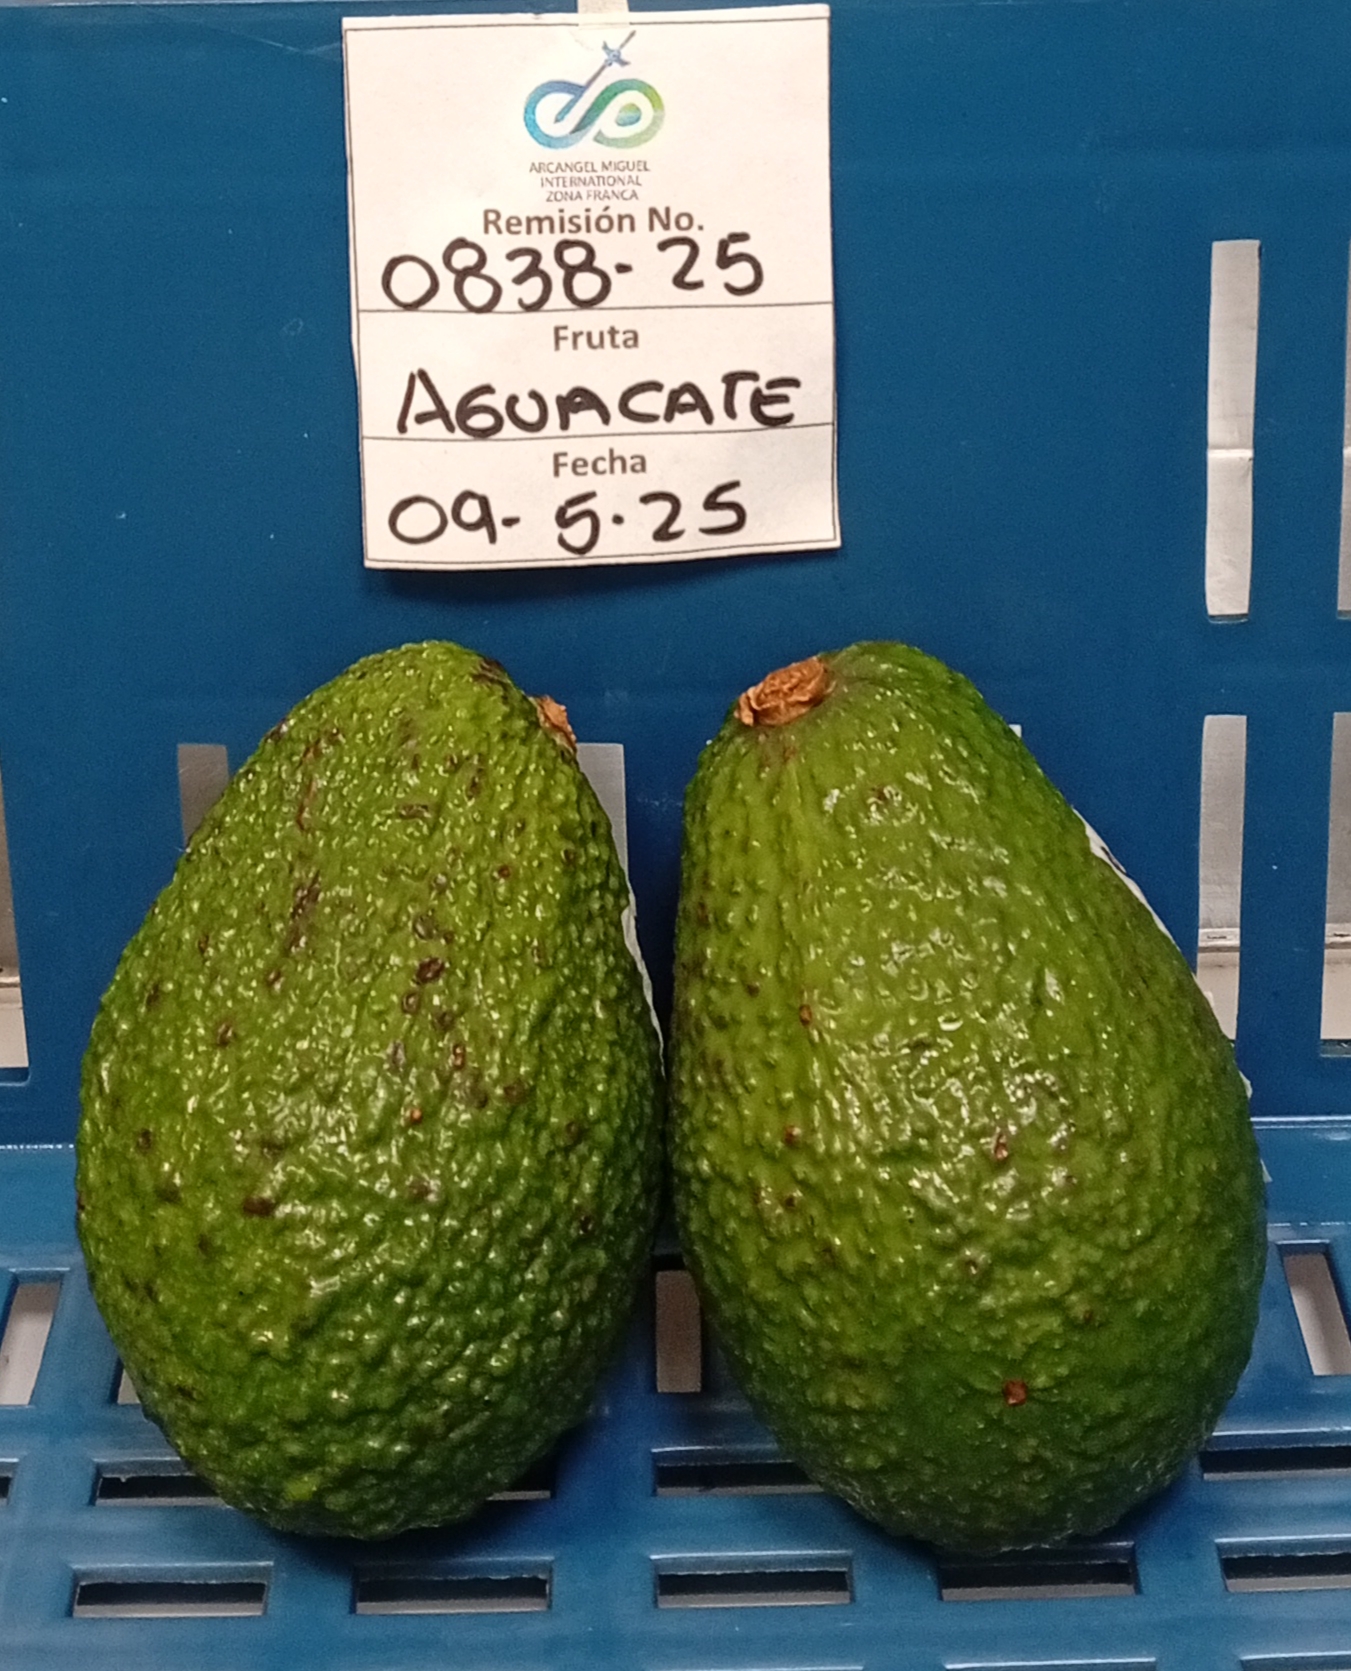 ARCANGEL MIGUEL
INTERNATIONAL
ZONA FRANCA
Remisión No.
0838-25
Fruta
AGUACATE
Fecha
09-5.25